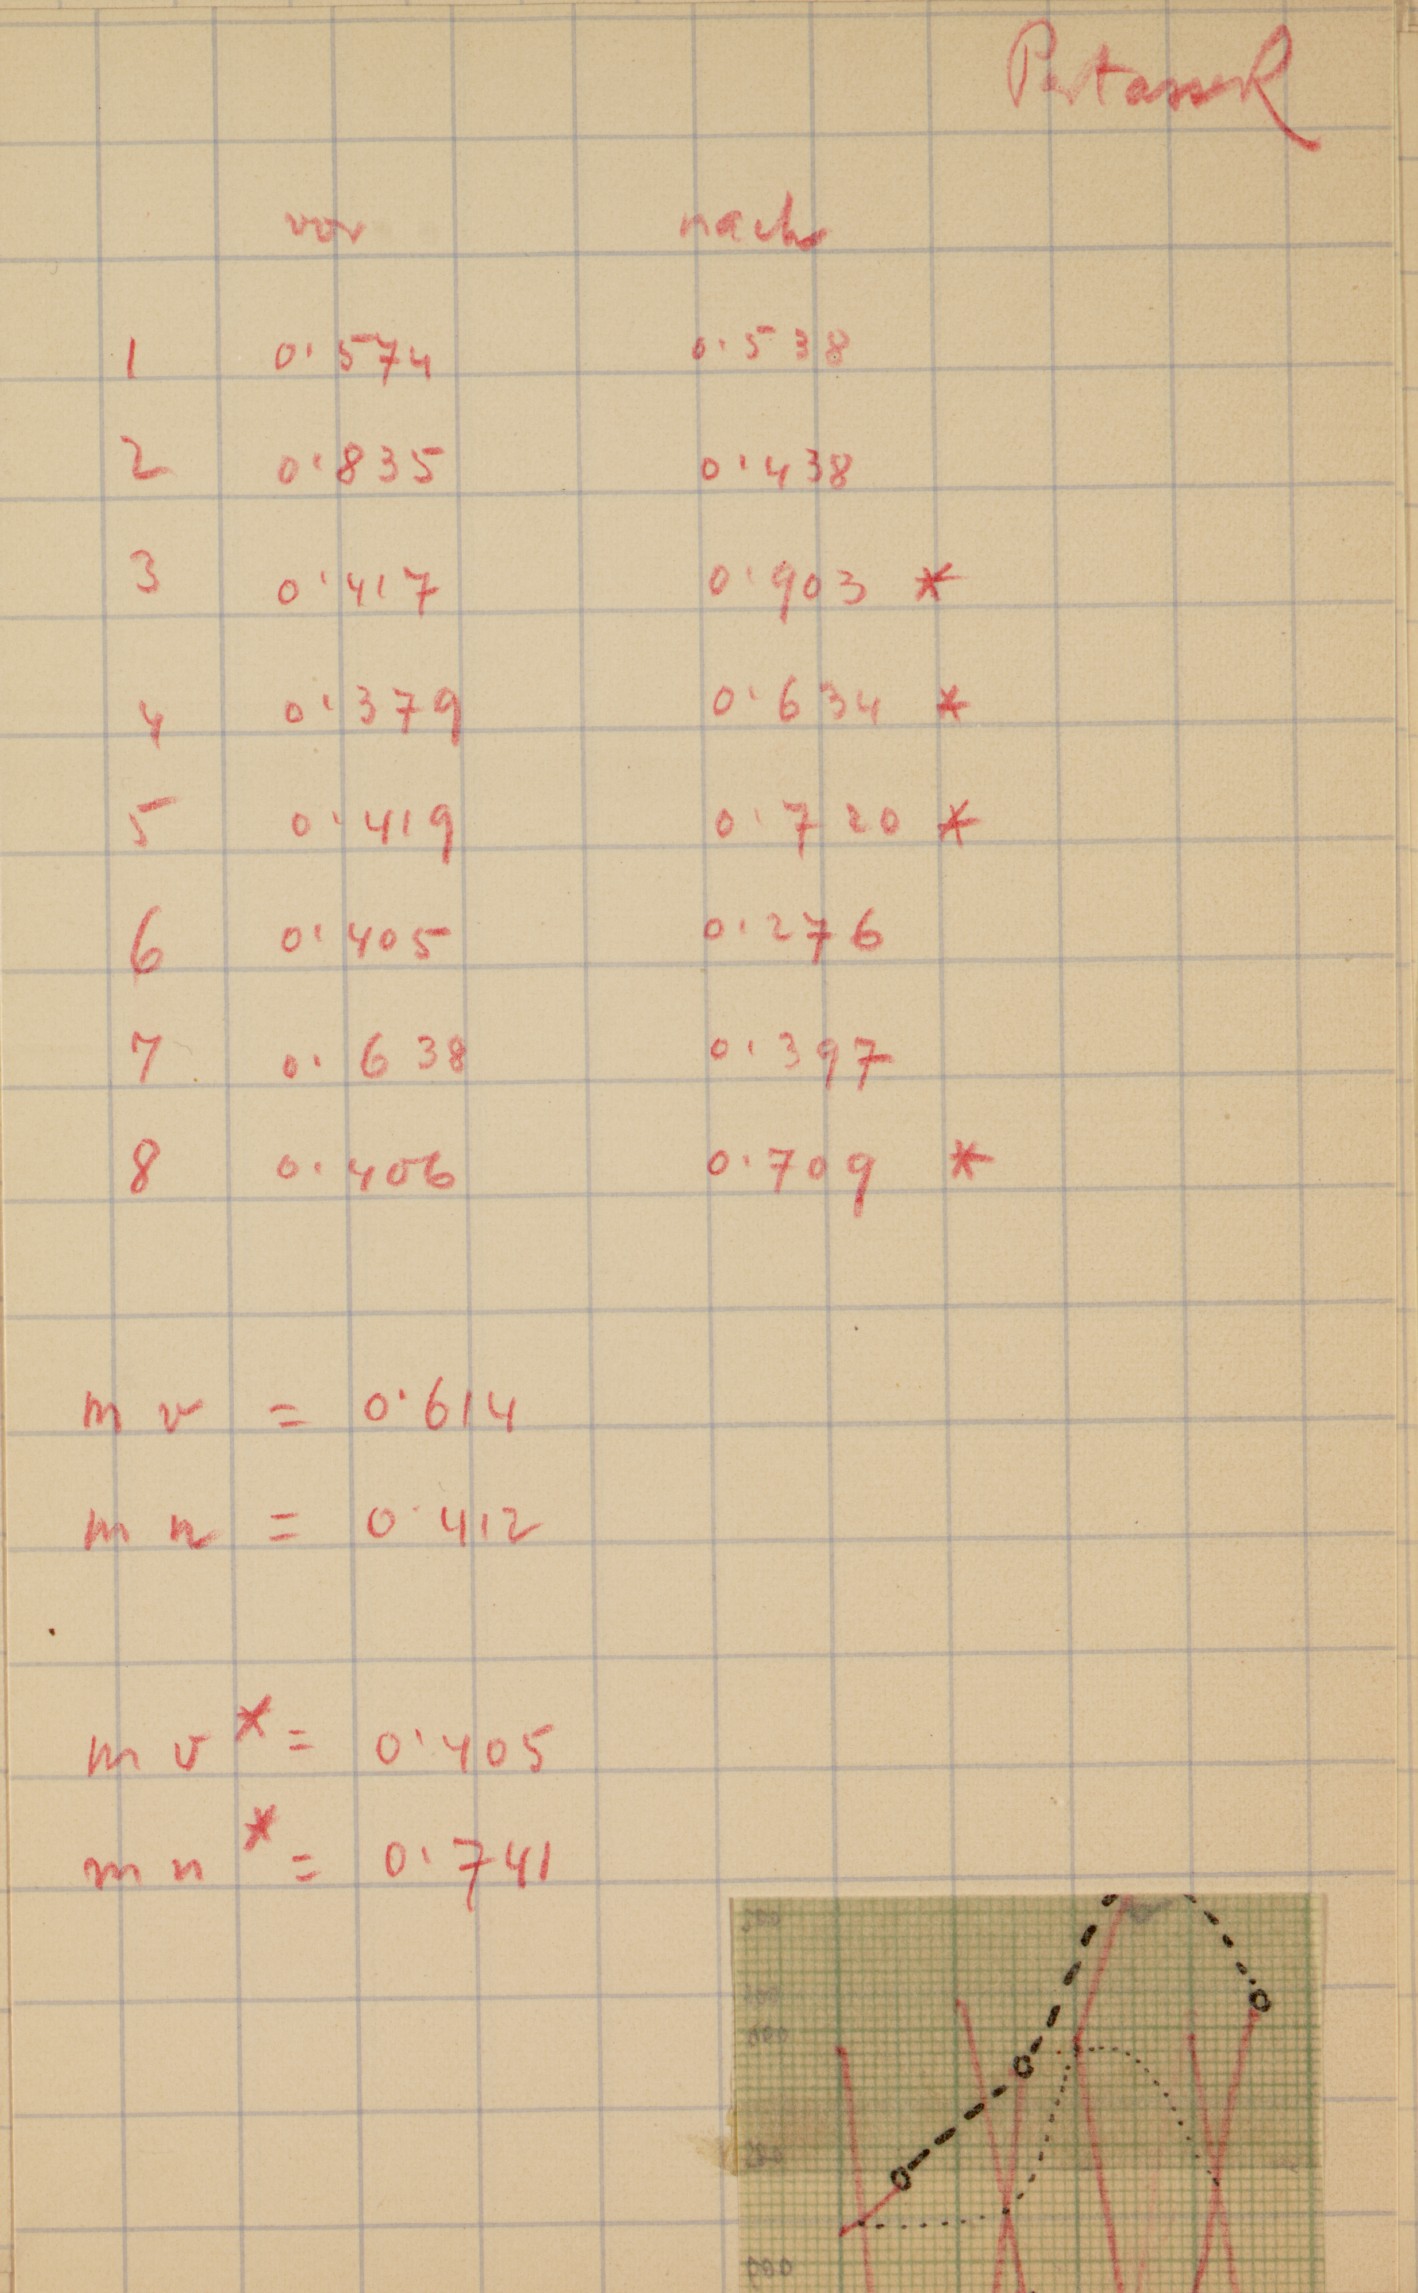 vor nach
1 0.574 0.538
2 0.835 0.438
3 0.417 0.903 *
4 0.379 0.634 *
5 0.419 0.720 *
6 0.405 0.276
7 0.638 0.397
8 0.406 0.709 *
m v = 0.614
m n = 0.412
m v * = 0.405
m n * = 0.741